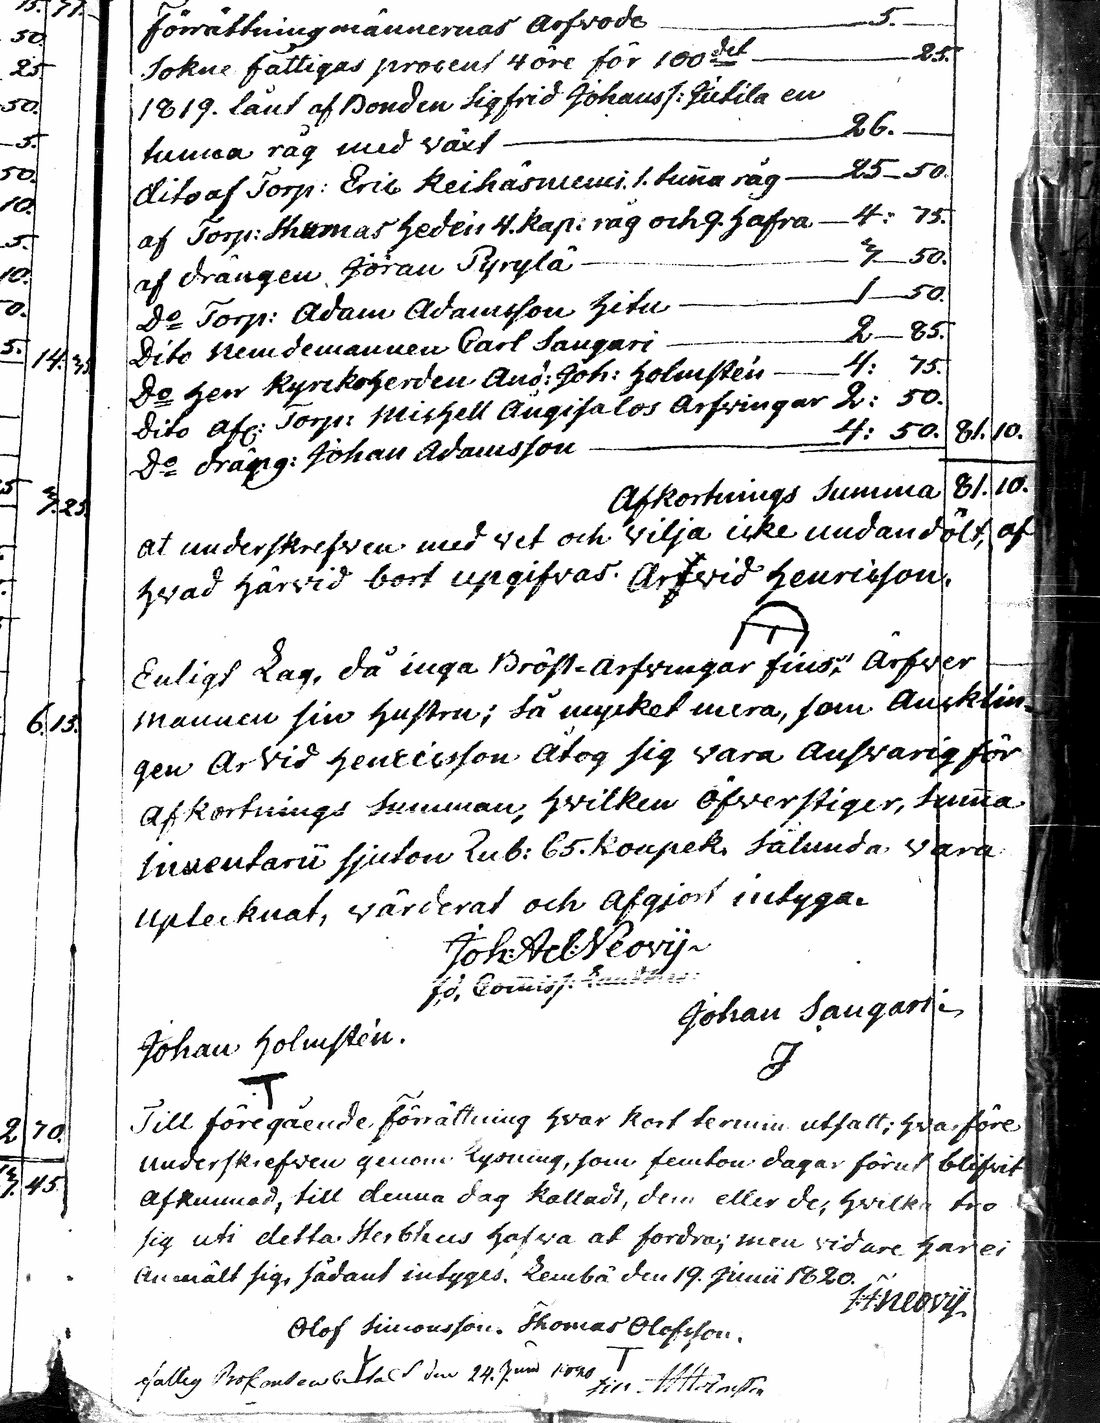 15. 77.
50.
25
50.
5.
50.
10.
5.
10.
0.
5. 14.
7. 25
6. 13.
2 70.
45.
Förrättningsmännernas Arfwode 5.
Sokne fattigas procent 4 öre för 100det 25.
1819. lånt af Bonden Sigfrid Johanss: Jutila en
tunna råg med växt 26.
dito af Torp: Eric Keihäsniemi. 1. tunna råg 25 50.
af Torp: Thomas Heden 4. kap: råg och 9. Hafra 4: 75.
af drängen Jöran Pyrylä 7 50.
Do Torp: Adam Adamsson Hitu 1 50.
Dito Nemdemannen Carl Saugari 2 85.
Do Herr Kyrckoherden And: Joh: Holmstén 4: 75.
Dito Af: Torp: Mickell Augisalos Arfwingar 2: 50.
Do dräng: Johan Adamsson 4: 50. 81. 10.
Afkortnings Summa 81. 10.
at underskrefwen med vet och vilja icke undandölt, af
hwad härvid bort upgifvas. Arfwid Henricsson.
Enligt Lag, då inga Bröst-Arfwingar fins, Ärfwer
Mannen sin Hustru; så mycket mera, som Ancklin-
gen Arvid Henricsson Åtog sig vara Answarig för
Afkortnings Summan, hwilken öfwerstiger, Summa
Inventarii sjuton Rub: 65. koupek. Sålunda vara
uptecknat, värderat och Afgjort intyga.
Joh: Ad: Neovij
f,d, Commiss:
Johan Saugari
J
Johan Holmstén.
T
Till föregående Förrättning hwar kort termin utsatt; hwarföre
Underskrefwen genom Lysning, som femton dagar förut blifvit
Afkunnad, till denna dag kalladt, dem eller de, hwilka tro
sig uti detta Sterbhus hafwa at fordra; men vidare har ei
Anmält sig, sådant intyges. Lembå den 19. Junii 1820.
Neovij
Olof Simonsson. Thomas Olofsson.
T
fattig den 24. Juni 1820